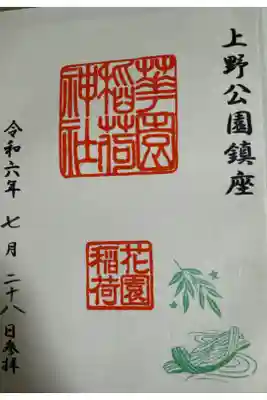 上野公園鎮座
華園
稲荷
神社
花園
稲荷
令和六年 七月 二十八日参拝